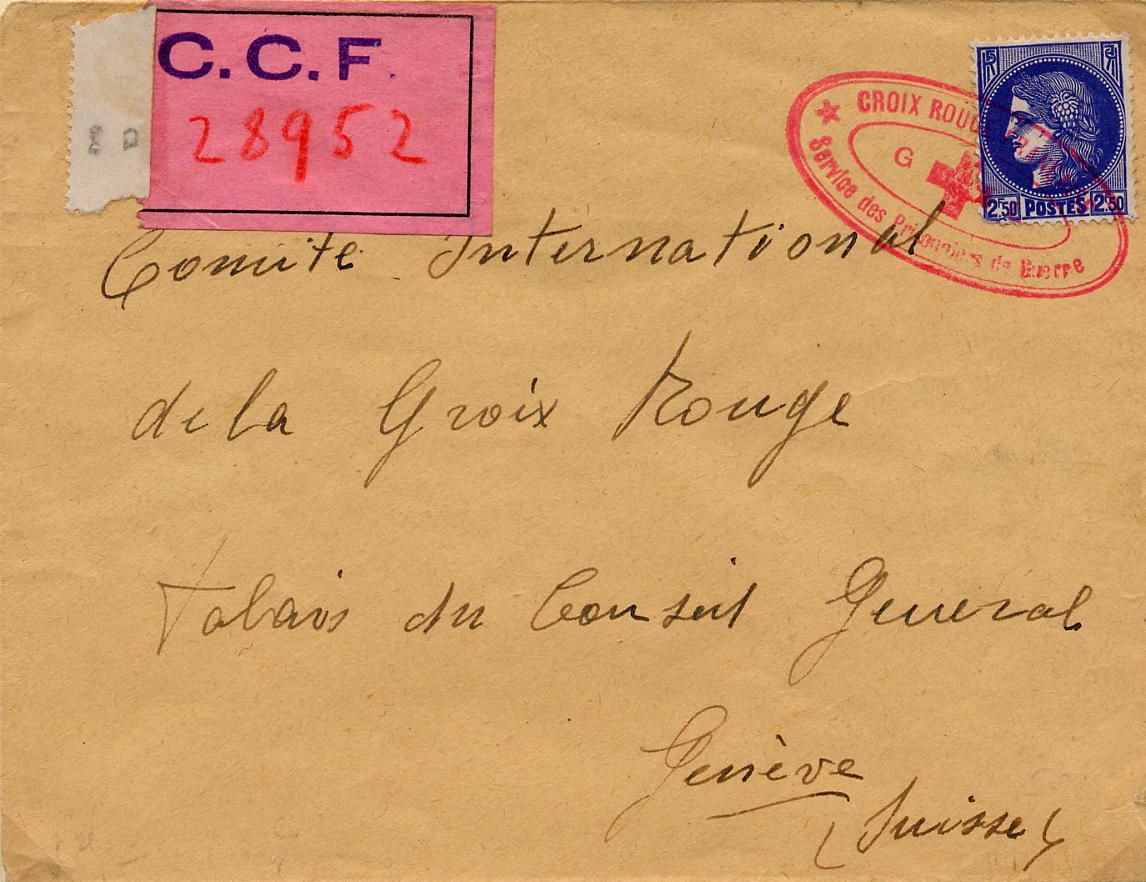 C. C. F.
28952
CROIX ROUG
Service des Prisonniers de Guerre
G
2F50 POSTES 2F50
Comité International
de la Croix Rouge
Palais du Conseil General
Genève
(Suisse)